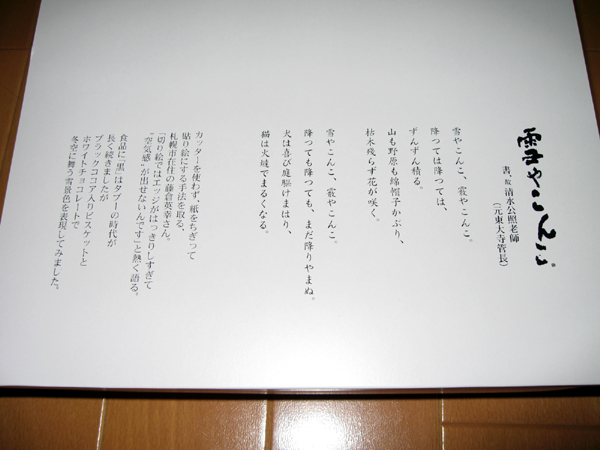 雪やこんこ®
書、故 清水公照老師
(元東大寺管長)
雪やこんこ、霰やこんこ。
降つては降つては、
ずんずん積る。
山も野原も綿帽子かぶり、
枯木残らず花が咲く。
雪やこんこ、霰やこんこ。
降つても降つても、まだ降りやまぬ。
犬は喜び庭駆けまはり、
猫は火燵でまるくなる。
カッターを使わず、紙をちぎって
貼り絵にする手法を取る、
札幌市在住の藤倉英幸さん。
「切り絵ではエッジがはっきりしすぎて
"空気感"が出せないんです」と熱く語る。
食品に「黒」はタブーの時代が
長く続きましたが
ブラックココア入りビスケットと
ホワイトチョコレートで
冬空に舞う雪景色を表現してみました。